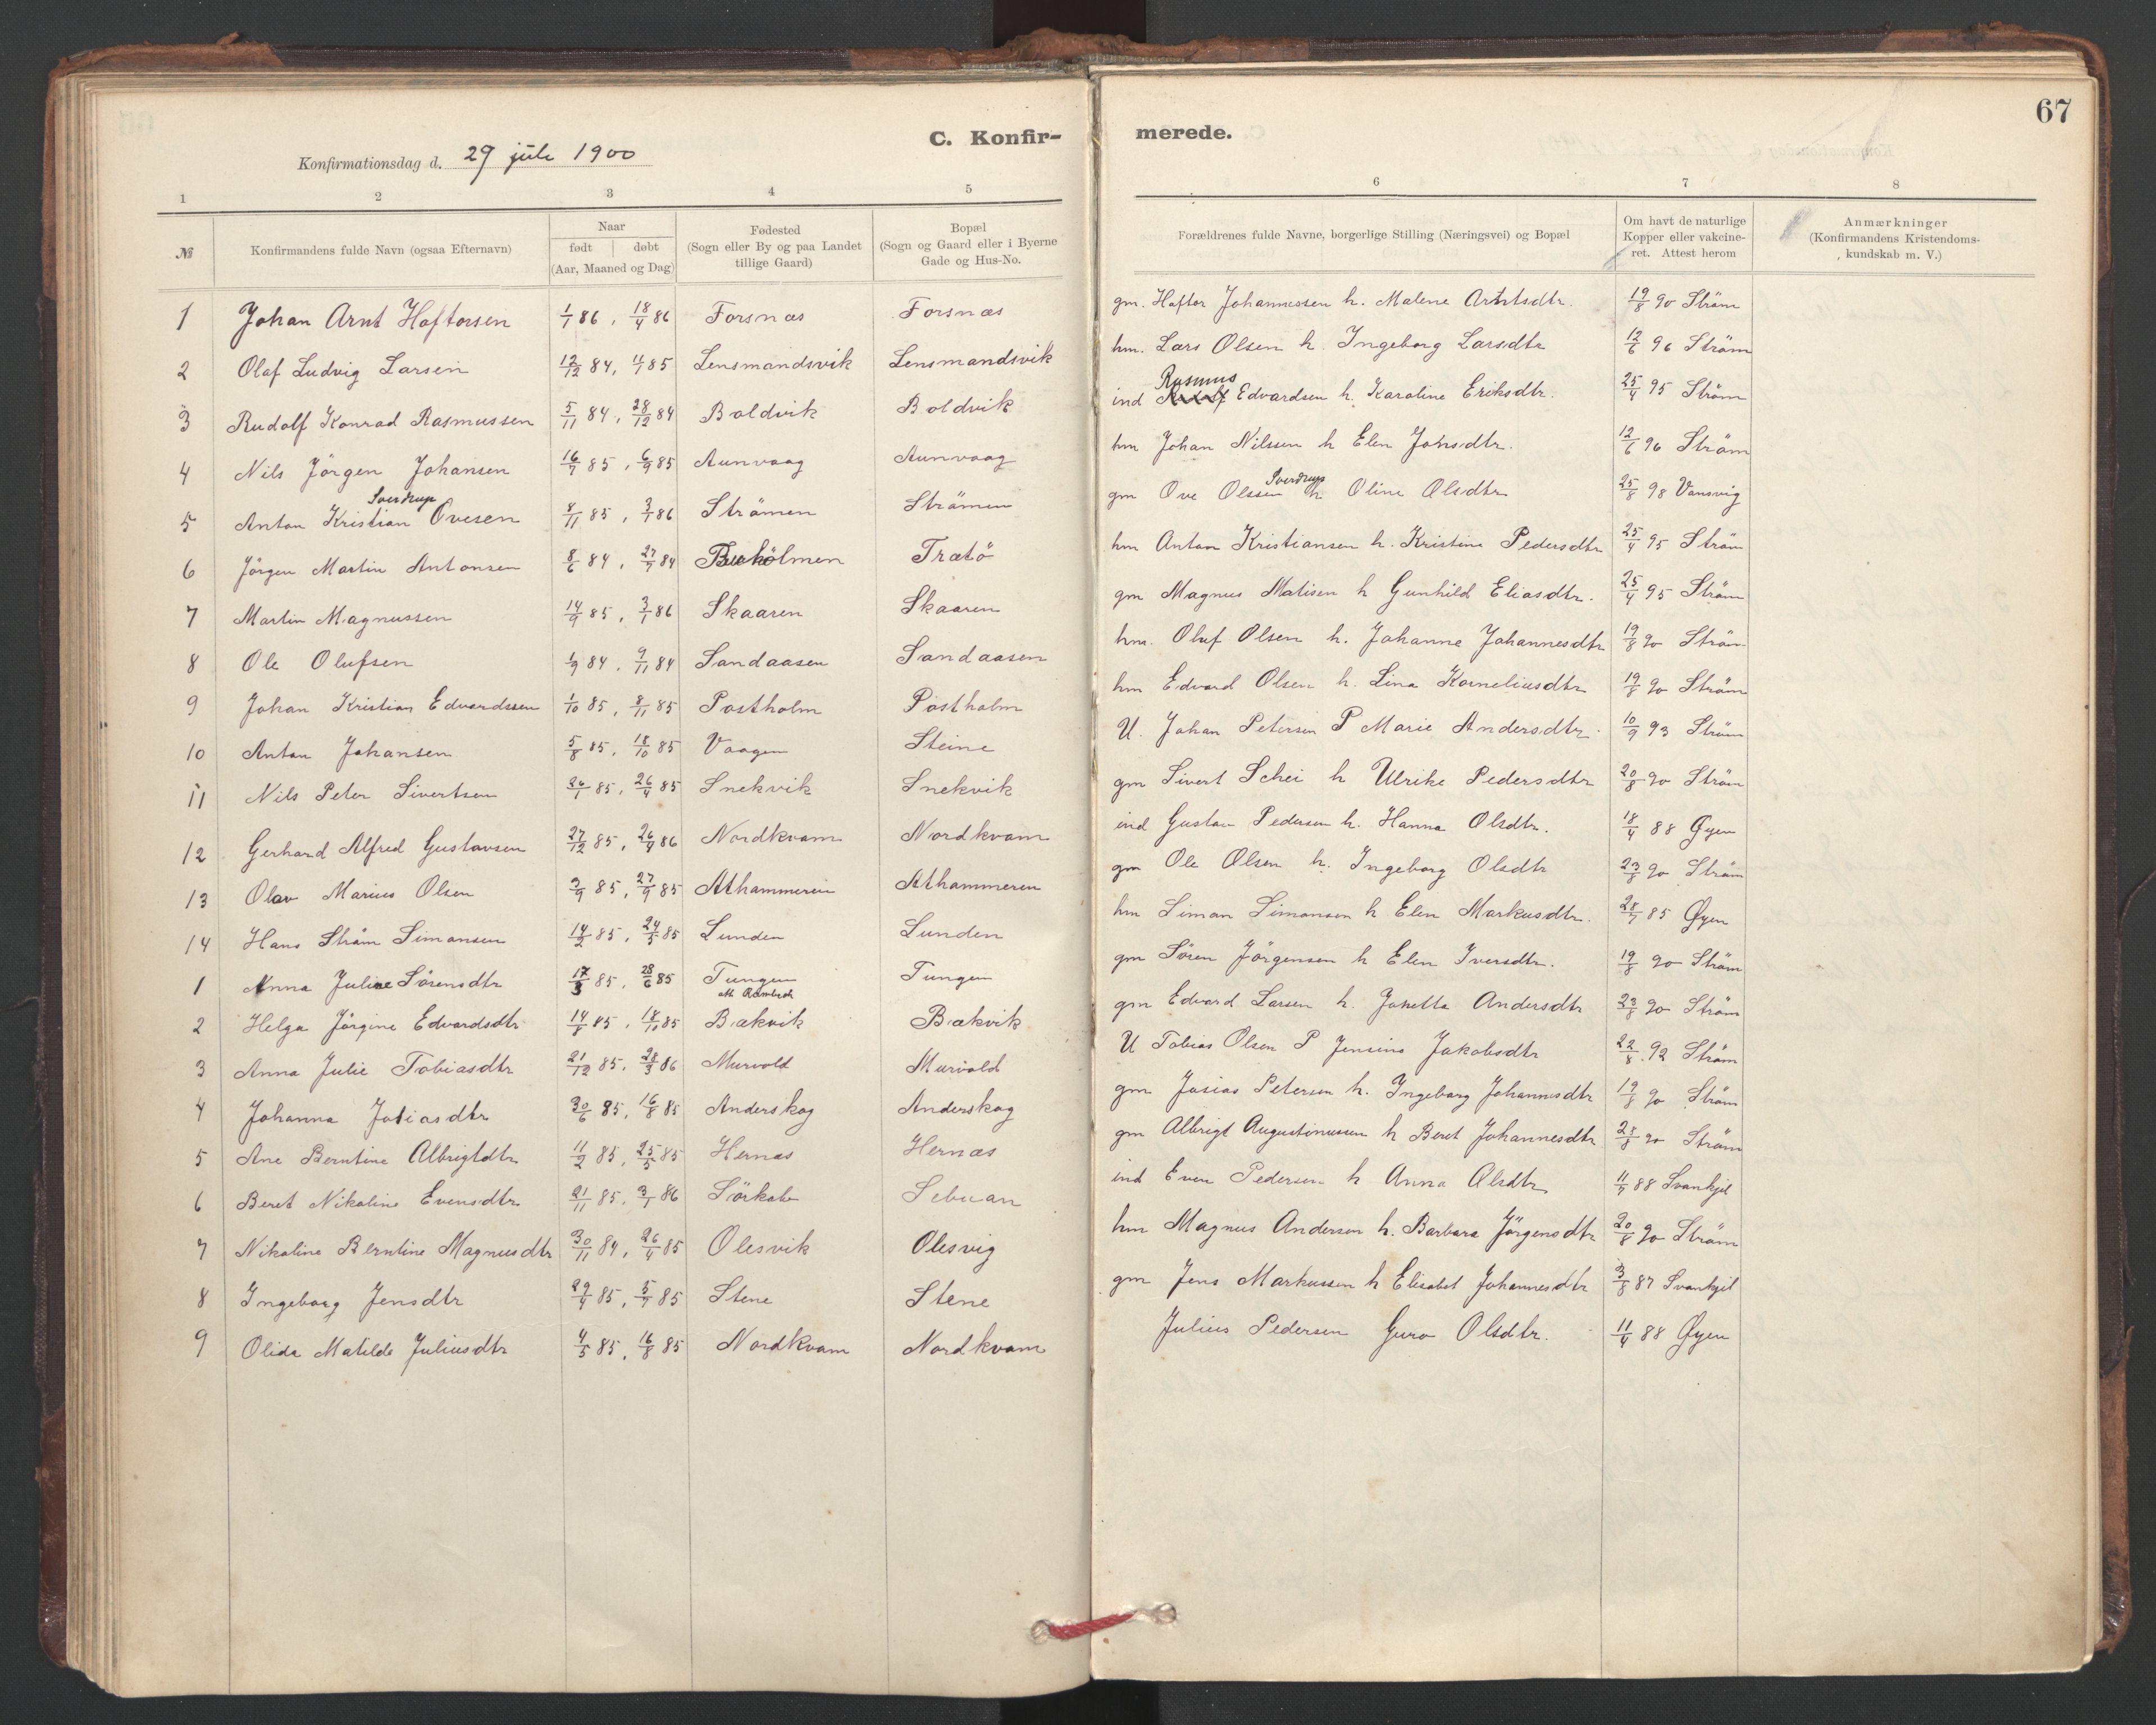 67
C. Konfirmerede.
Konfirmationsdag d. 29 juli 1900
1 2 3 4 5 6 7 8
№
Konfirmandens fulde Navn (ogsaa Efternavn)
Naar
født | døbt
(Aar, Maaned og Dag)
Fødested
(Sogn eller By og paa Landet
tillige Gaard)
Bopæl
(Sogn og Gaard eller i Byerne
Gade og Hus-No.
Forældrenes fulde Navne, borgerlige Stilling (Næringsvei) og Bopæl
Om havt de naturlige
Kopper eller vakcine-
ret. Attest herom
Anmærkninger
(Konfirmandens Kristendoms-
kundskab m. V.)
1 Johan Arnt Haftorsen 1/1 86, 18/4 86 Forsnæs Forsnæs gm. Haftor Johannessen h. Malene Arntsdtr. 19/8 90 Ström
2 Olaf Ludvig Larsen 12/12 84, 1/1 85 Lensmandsvik Lensmandsvik hm. Lars Olsen h. Ingeborg Larsdtr 12/6 96 Ström
3 Rudolf Konrad Rasmussen 5/11 84, 28/12 84 Boldvik Boldvik ind Rasmus Edvardsen h. Karoline Eriksdtr. 25/4 95 Ström
4 Nils Jörgen Johansen 16/7 85, 6/9 85 Aunvaag Aunvaag hm Johan Nilssen h Elen Johnsdtr. 12/6 96 Ström
5 Anton Kristian Sverdrup Ovesen 8/11 85, 3/1 86 Strömen Strömen gm Ove Olssen Sverdrup h Oline Olsdtr 25/8 98 Vansvig
6 Jörgen Martin Antonsen 8/6 84, 27/7 84 Bukholmen Trætö hm Anton Kristiansen h. Kristine Pedersdtr 25/4 95 Ström
7 Martin Magnussen 14/9 85, 3/1 86 Skaaren Skaaren gm Magnus Matisen h Gunhild Eliasdtr. 25/4 95 Ström
8 Ole Olufsen 1/9 84, 9/11 84 Sandaasen Sandaasen hm. Oluf Olsen h. Johanne Johannesdtr 19/8 90 Ström
9 Johan Kristian Edvardssen 1/10 85, 8/11 85 Postholm Postholm hm Edvard Olsen h. Lina Korneliusdtr 19/8 90 Ström
10 Anton Johansen 5/8 85, 18/10 85 Vaagen Steine U. Johan Petersen P Marie Andersdtr. 10/9 93 Ström
11 Nils Peter Sivertsen 26/1 85, 26/4 85 Snekvik Snekvik gm Sivert Schei h Ulrike Pedersdtr 20/8 90 Ström
12 Gerhard Alfred Gustavsen 27/12 85, 26/4 86 Nordkvam Nordkvam ind Gustav Pedersen h. Hanna Olsdtr. 18/4 88 Öyen
13 Olav Marius Olsen 3/9 85, 27/9 85 Athammeren Athammeren gm Ole Olsen h. Ingeborg Olsdtr 23/8 90 Ström
14 Hans Ström Simonsen 14/2 85, 24/5 85 Lunden Lunden hm Simon Simonsen h Elen Markusdtr. 28/7 85 Öyen
1 Anna Juline Sörensdtr 17/3 85, 28/6 85 Tungen Tungen gm Sören Jörgensen h Elen Iversdtr. 19/8 90 Ström
2 Helga Jörgine Edvardsdtr 14/8 85, 18/11 85 Bækvik Bækvik gm Edvard Larsen h. Jakette Andersdtr 23/8 90 Ström
3 Anna Julie Tobiasdtr 21/12 85, 28/3 86 Murvold Murvold U Tobias Olsen P Jensine Jakobsdtr 22/8 92 Ström
4 Johanna Josiasdtr 30/6 85, 16/8 85 Anderskog Anderskog gm Josias Petersen h. Ingeborg Johannesdtr 19/8 90 Ström
5 Ane Berntine Albrigtdtr 11/2 85, 25/5 85 Hernæs Hernæs gm Albrigt Augustinussen h Beret Johannesdtr 28/8 90 Ström
6 Beret Nikoline Evensdtr 21/11 85, 3/1 86 Sebuan ind Even Pedersen h Anna Olsdtr 11/7 88 Svankjil
7 Nikoline Berntine Magnusdtr 30/11 84, 26/4 85 Olesvik Olesvig hm Magnus Andersen h. Barbara Jörgensdtr 20/8 90 Ström
8 Ingeborg Jensdtr 29/4 85, 5/7 85 Stene Stene gm Jens Markussen h Elisabet Johannesdtr 3/8 87 Svankjil
9 Olida Matilde Juliusdtr 4/5 85, 16/8 85 Nordkvam Nordkvam Julius Pedersen Guro Olsdtr. 11/4 88 Öyen